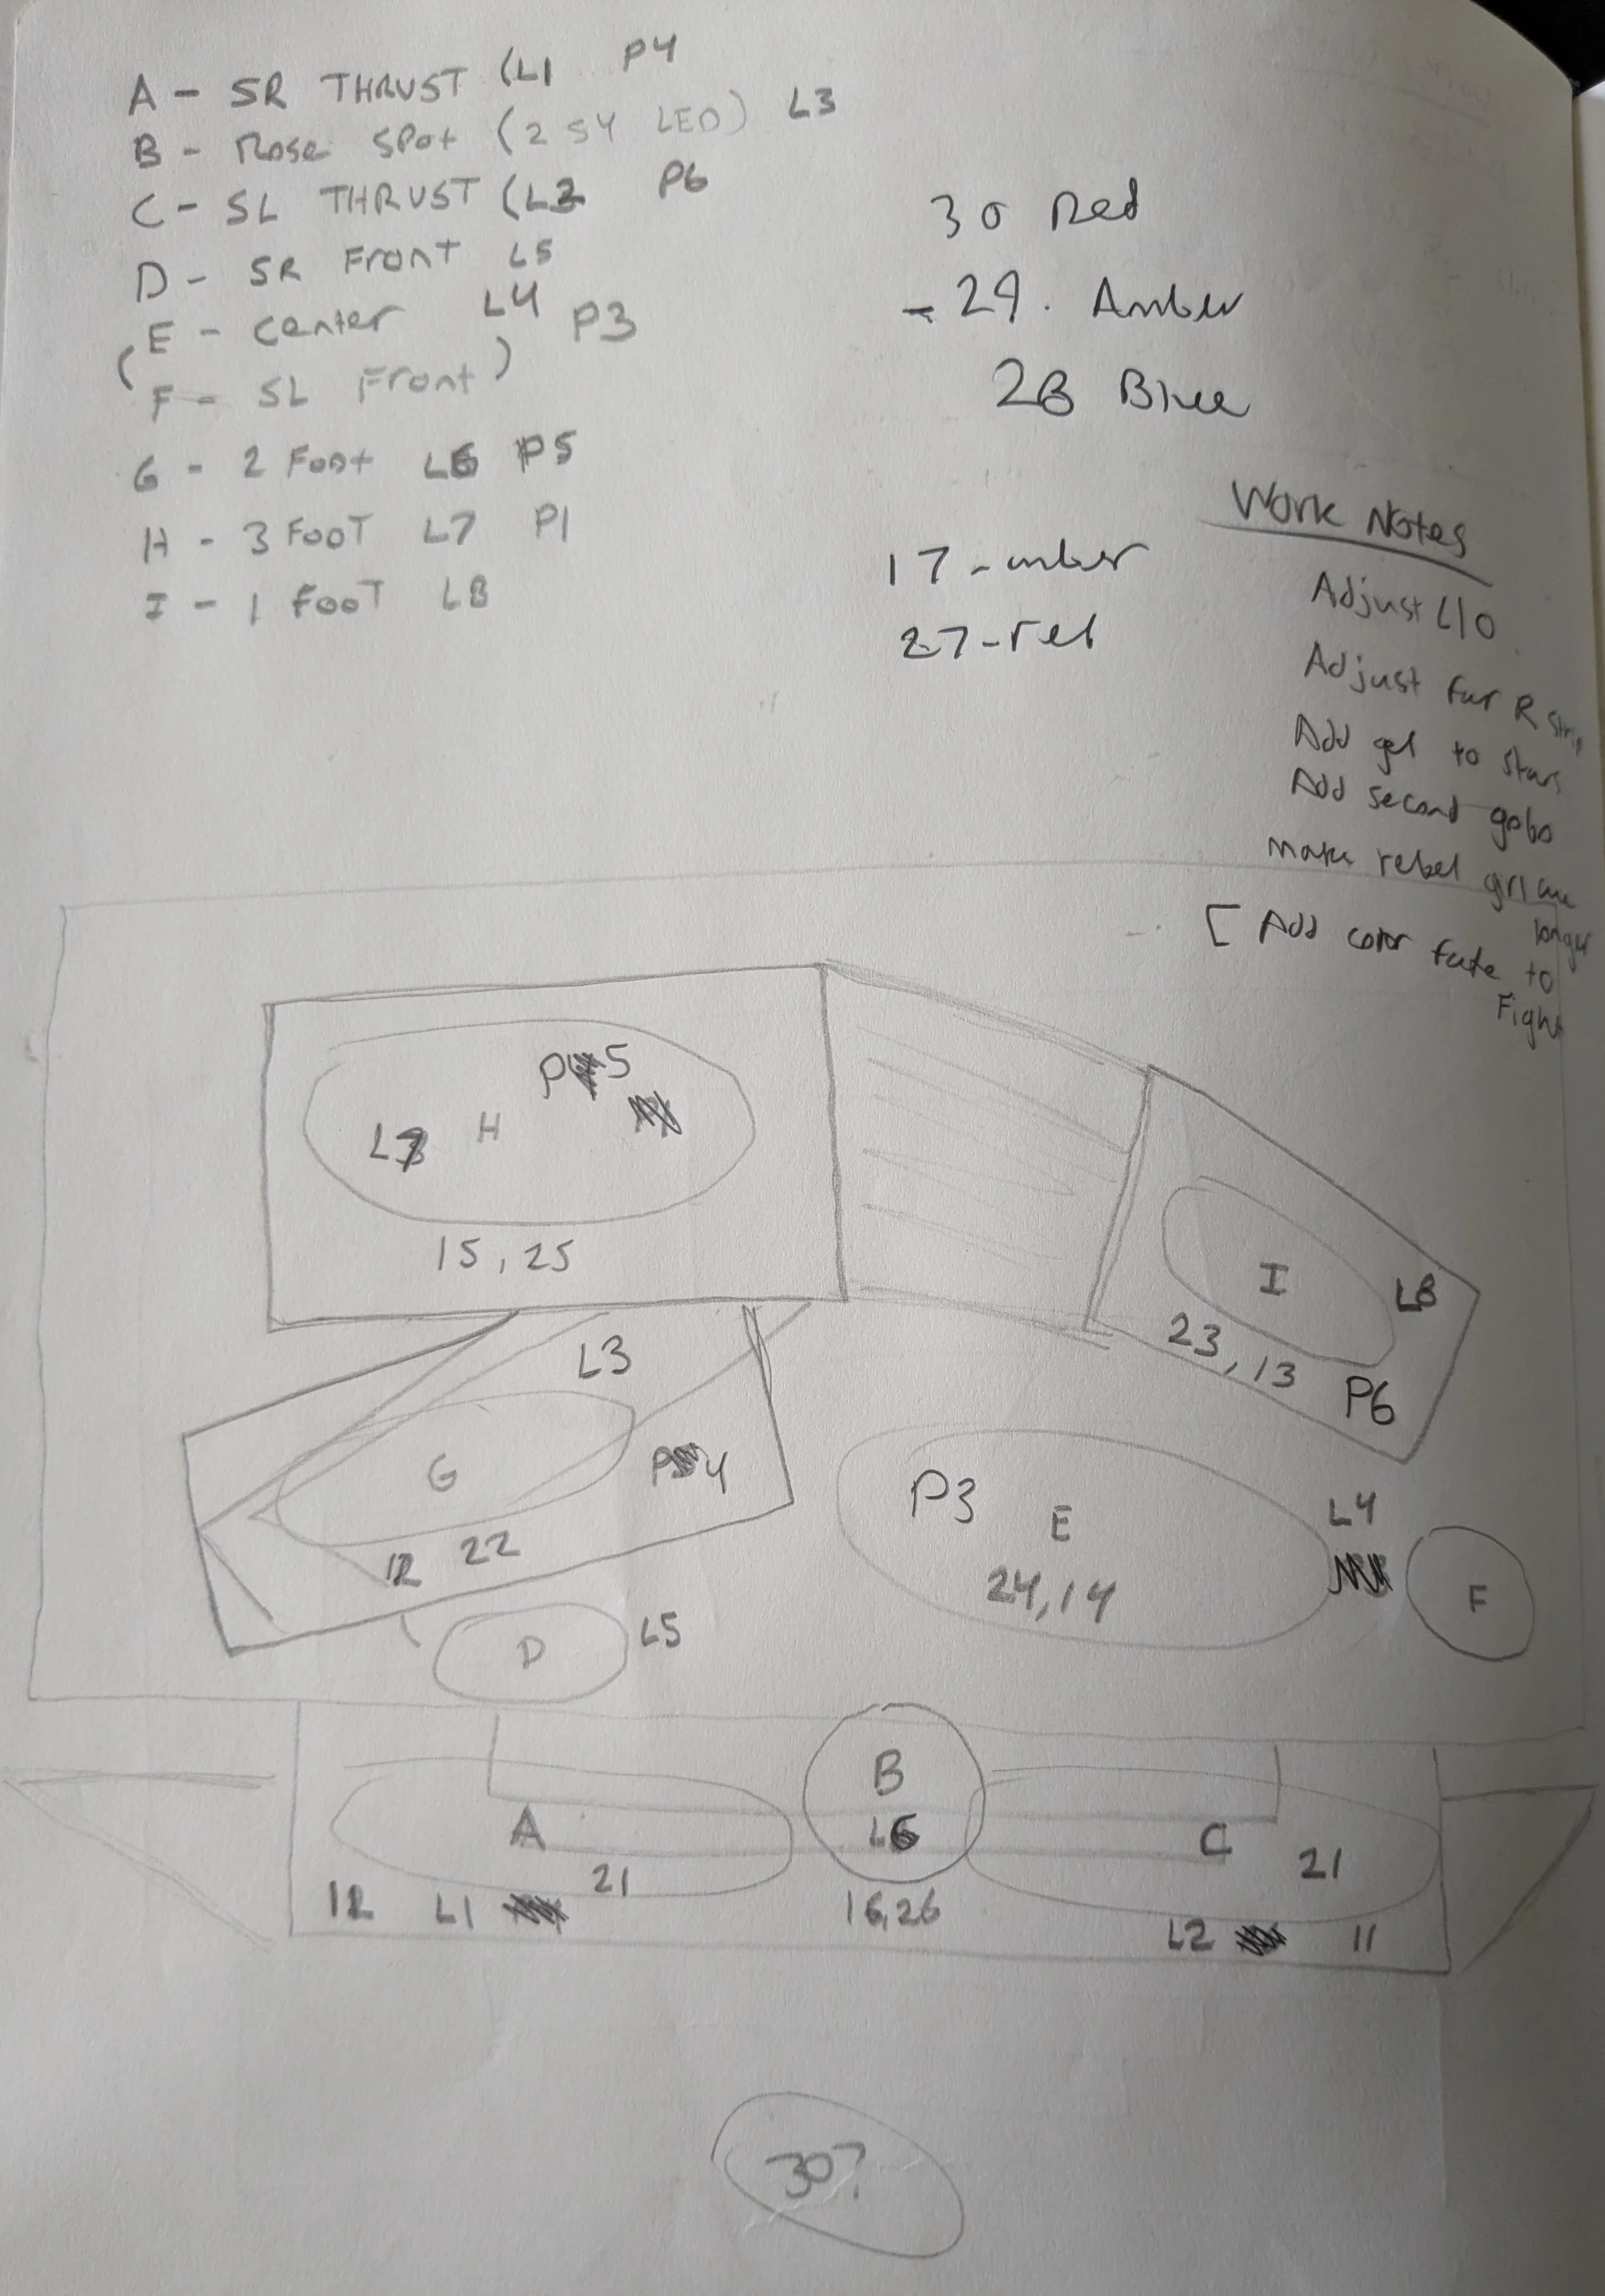 A - SR THRUST (L1 P4
B - Rose spot (2 S4 LED) L3
C - SL THRUST (L2 P6
D - SR Front L5
(E - center L4 P3
F - SL Front)
G - 2 Foot L6 P5
H - 3 FOOT L7 P1
I - 1 FOOT L8
30 Red
- 29. Amber
28 Blue
17 - amber
27 - red
Work Notes
Adjust L10
Adjust far R strip
Add gel to stars
Add second gobo
make rebel girl cue
longer
[ Add color fade to
Fight
P5
L7 H
15, 25
I L8
23, 13
P6
L3
G P4
12 22
P3 E L4
24, 14
F
D L5
B
A L6 C
21 21
12 L1 16, 26 L2 11
30?